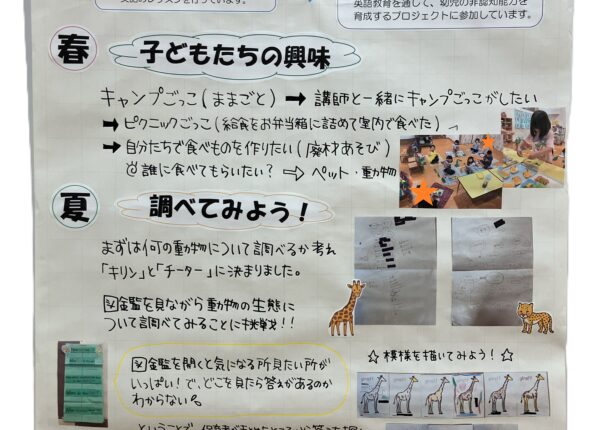 英語教育を通して、幼児の非認知能力を
育成するプロジェクトに参加しています。
春
子どもたちの興味
キャンプごっこ(ままごと) → 講師と一緒にキャンプごっこがしたい
→ ピクニックごっこ(給食をお弁当箱に詰めて室内で食べた)
→ 自分たちで食べものを作りたい(廃材あそび)
誰に食べてもらいたい? ⇨ ペット・動物
夏
調べてみよう!
まずは何の動物について調べるか考え
「キリン」と「チーター」に決まりました。
図鑑を見ながら動物の生態に
ついて調べてみることに挑戦!!
図鑑を開くと気になる所見たい所が
いっぱい!で、どこを見たら答えがあるのか
わからない
☆模様を描いてみよう!☆